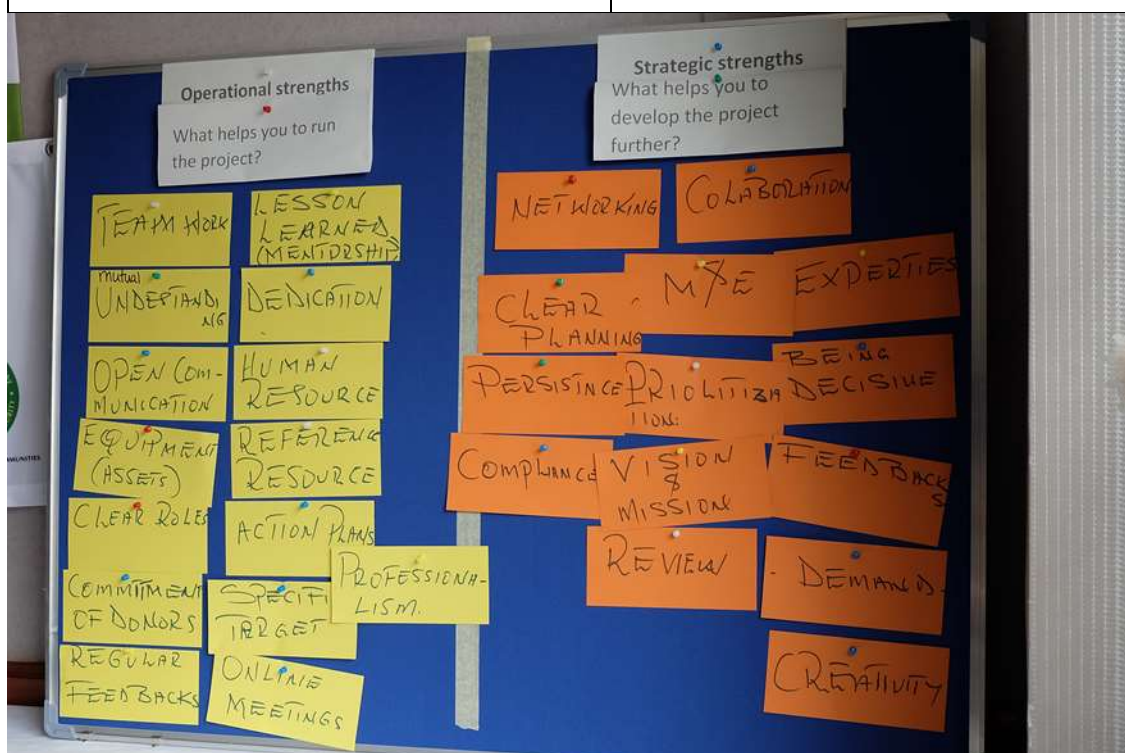 Operational strengths
What helps you to run
the project?
TEAM WORK
LESSON
LEARNED
(MENTORSHIP)
mutual
UNDERSTANDI
NG
DEDICATION
OPEN COM-
MUNICATION
HUMAN
RESOURCE
EQUIPMENT
(ASSETS)
REFERENCE
RESOURCE
CLEAR ROLES
ACTION PLANS
PROFESSIONA-
LISM.
COMMITMENT
OF DONORS
SPECIFI
TARGET
REGULAR
FEEDBACKS
ONLINE
MEETINGS
Strategic strengths
What helps you to
develop the project
further?
NETWORKING
COLABORATION
CLEAR
PLANNING
M&E
EXPERTIES
PERSISTINCE
PRIOLITIZA
TION.
BEING
DECISIVE
COMPLIANCE
VISION
&
MISSION
FEEDBACK
S
REVIEW
- DEMANDS.
CREATIVITY
MMUNITIES